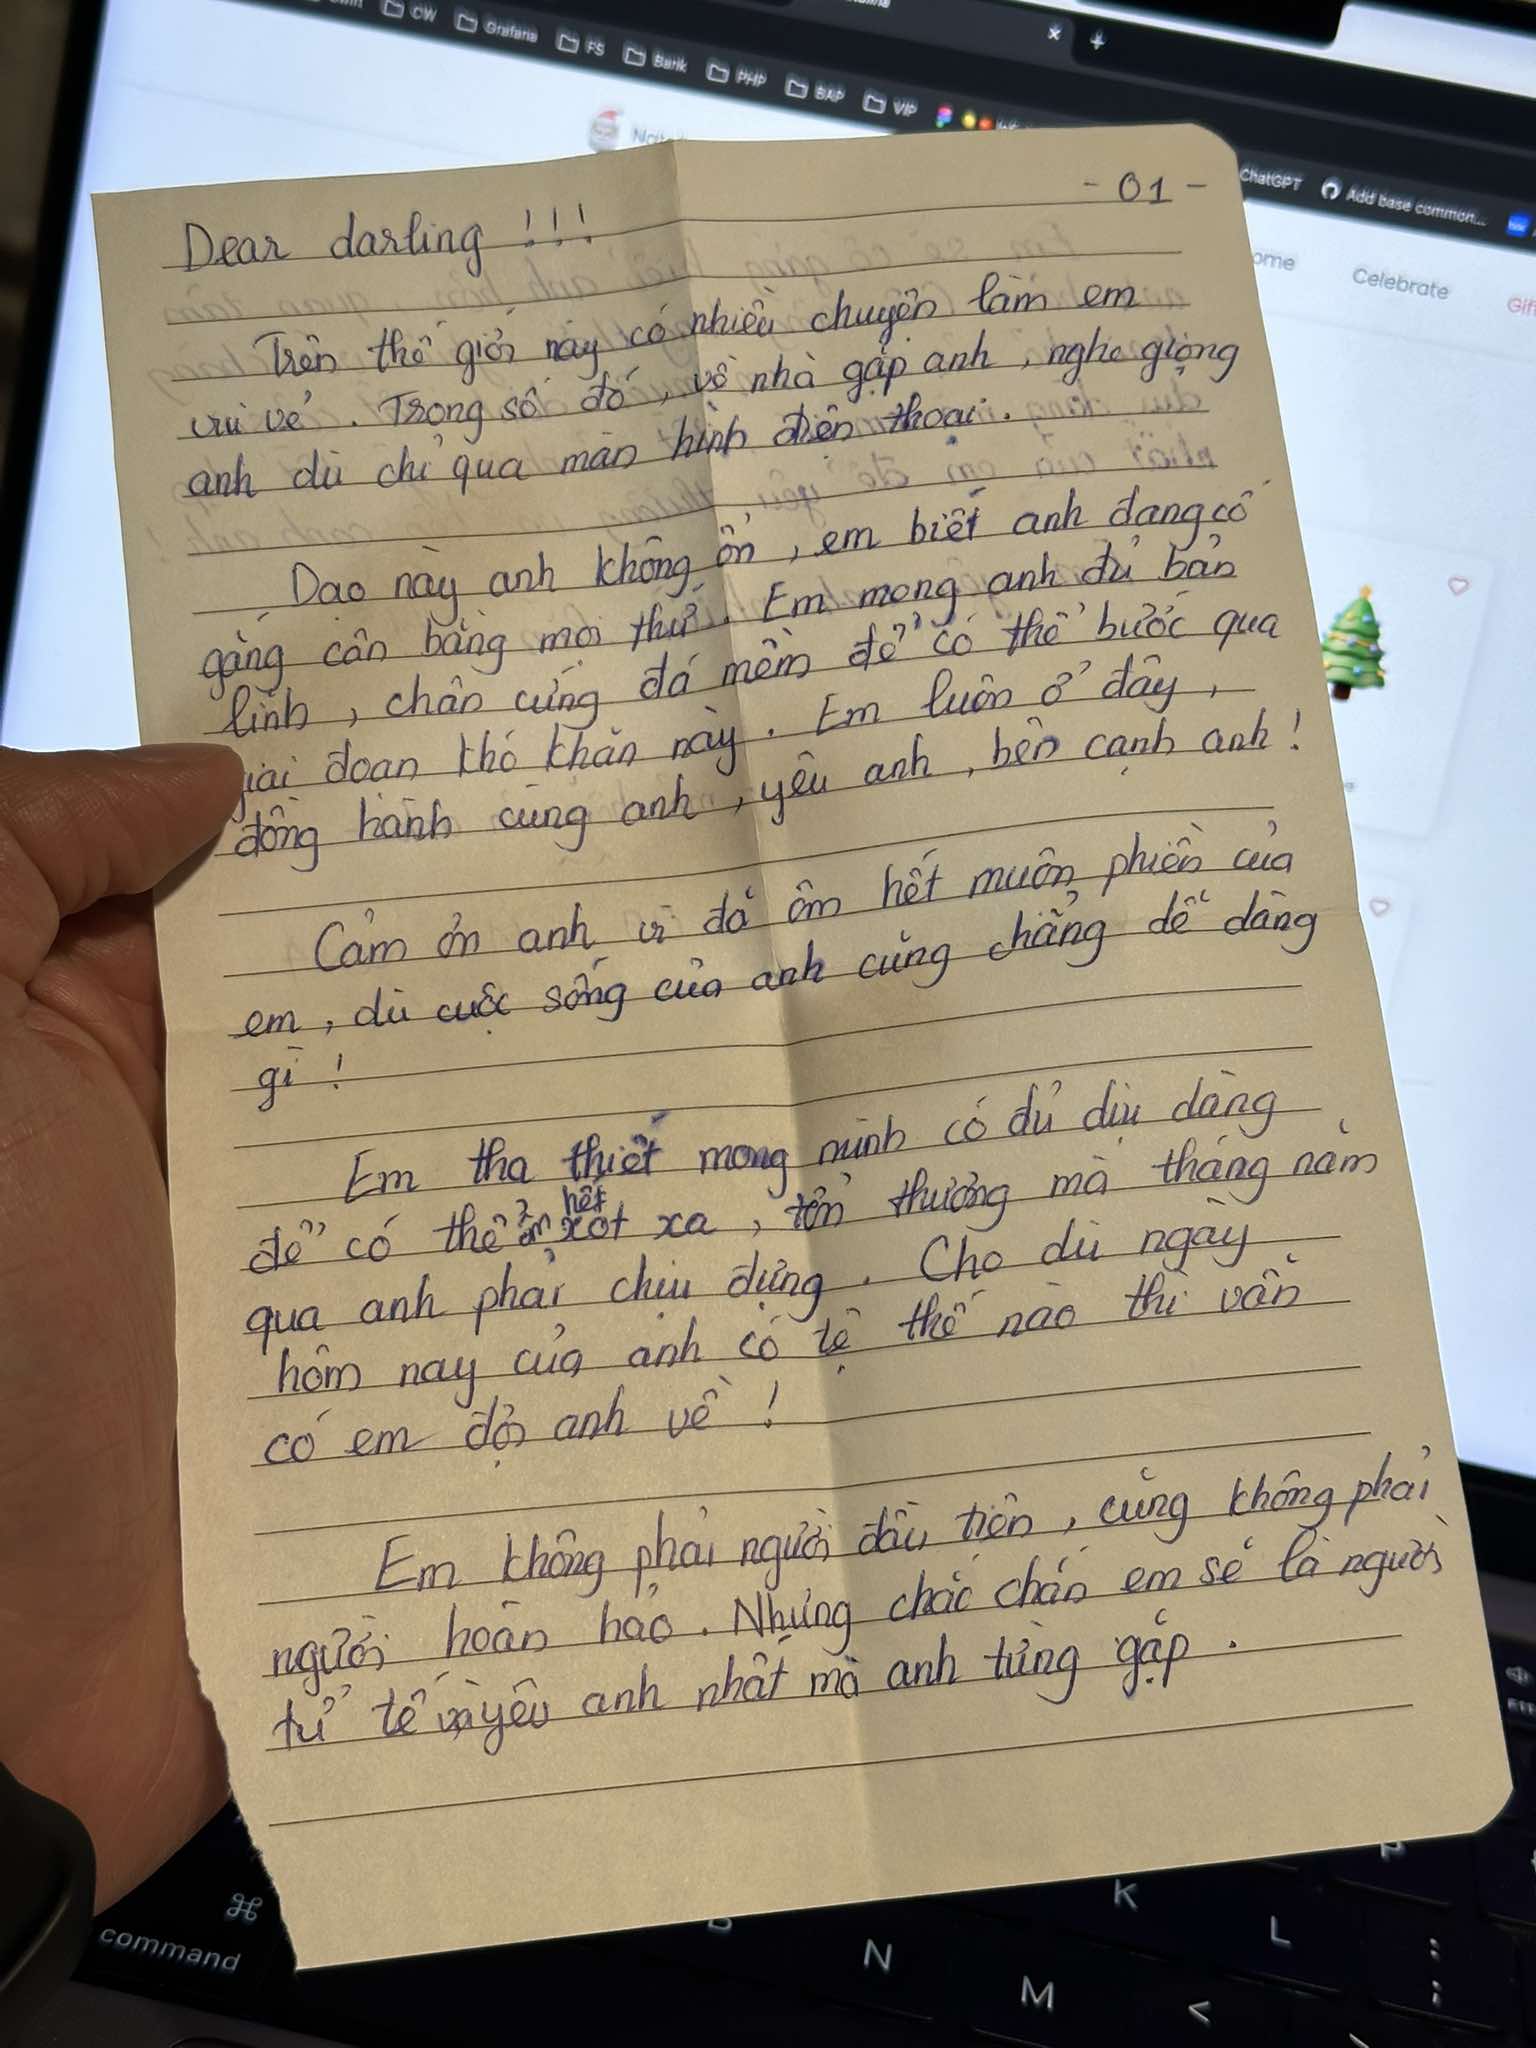 CW
Grafana
FS
Bank
PHP
BAP
VIP
ChatGPT
Add base common...
Celebrate
- 01 -
Dear darling !!!
Trên thế giới này có nhiều chuyện làm em
vui vẻ. Trong số đó, về nhà gặp anh, nghe giọng
anh dù chỉ qua màn hình điện thoại.
Dạo này anh không ổn, em biết anh đang cố
gắng cân bằng mọi thứ. Em mong anh đủ bản
lĩnh, chân cứng đá mềm để có thể bước qua
giai đoạn khó khăn này. Em luôn ở đây,
đồng hành cùng anh, yêu anh, bên cạnh anh!
Cảm ơn anh vì đã ôm hết muôn phiền của
em, dù cuộc sống của anh cũng chẳng dễ dàng
gì !
Em tha thiết mong mình có đủ dịu dàng
hết
để có thể ôm xót xa, tổn thương mà tháng năm
qua anh phải chịu đựng. Cho dù ngày
hôm nay của anh có tệ thế nào thì vẫn
có em đợi anh về !
Em không phải người đầu tiên, cũng không phải
người hoàn hảo. Nhưng chắc chắn em sẽ là người
tử tế và yêu anh nhất mà anh từng gặp.
command
N
M
K
L
P
<
:
;